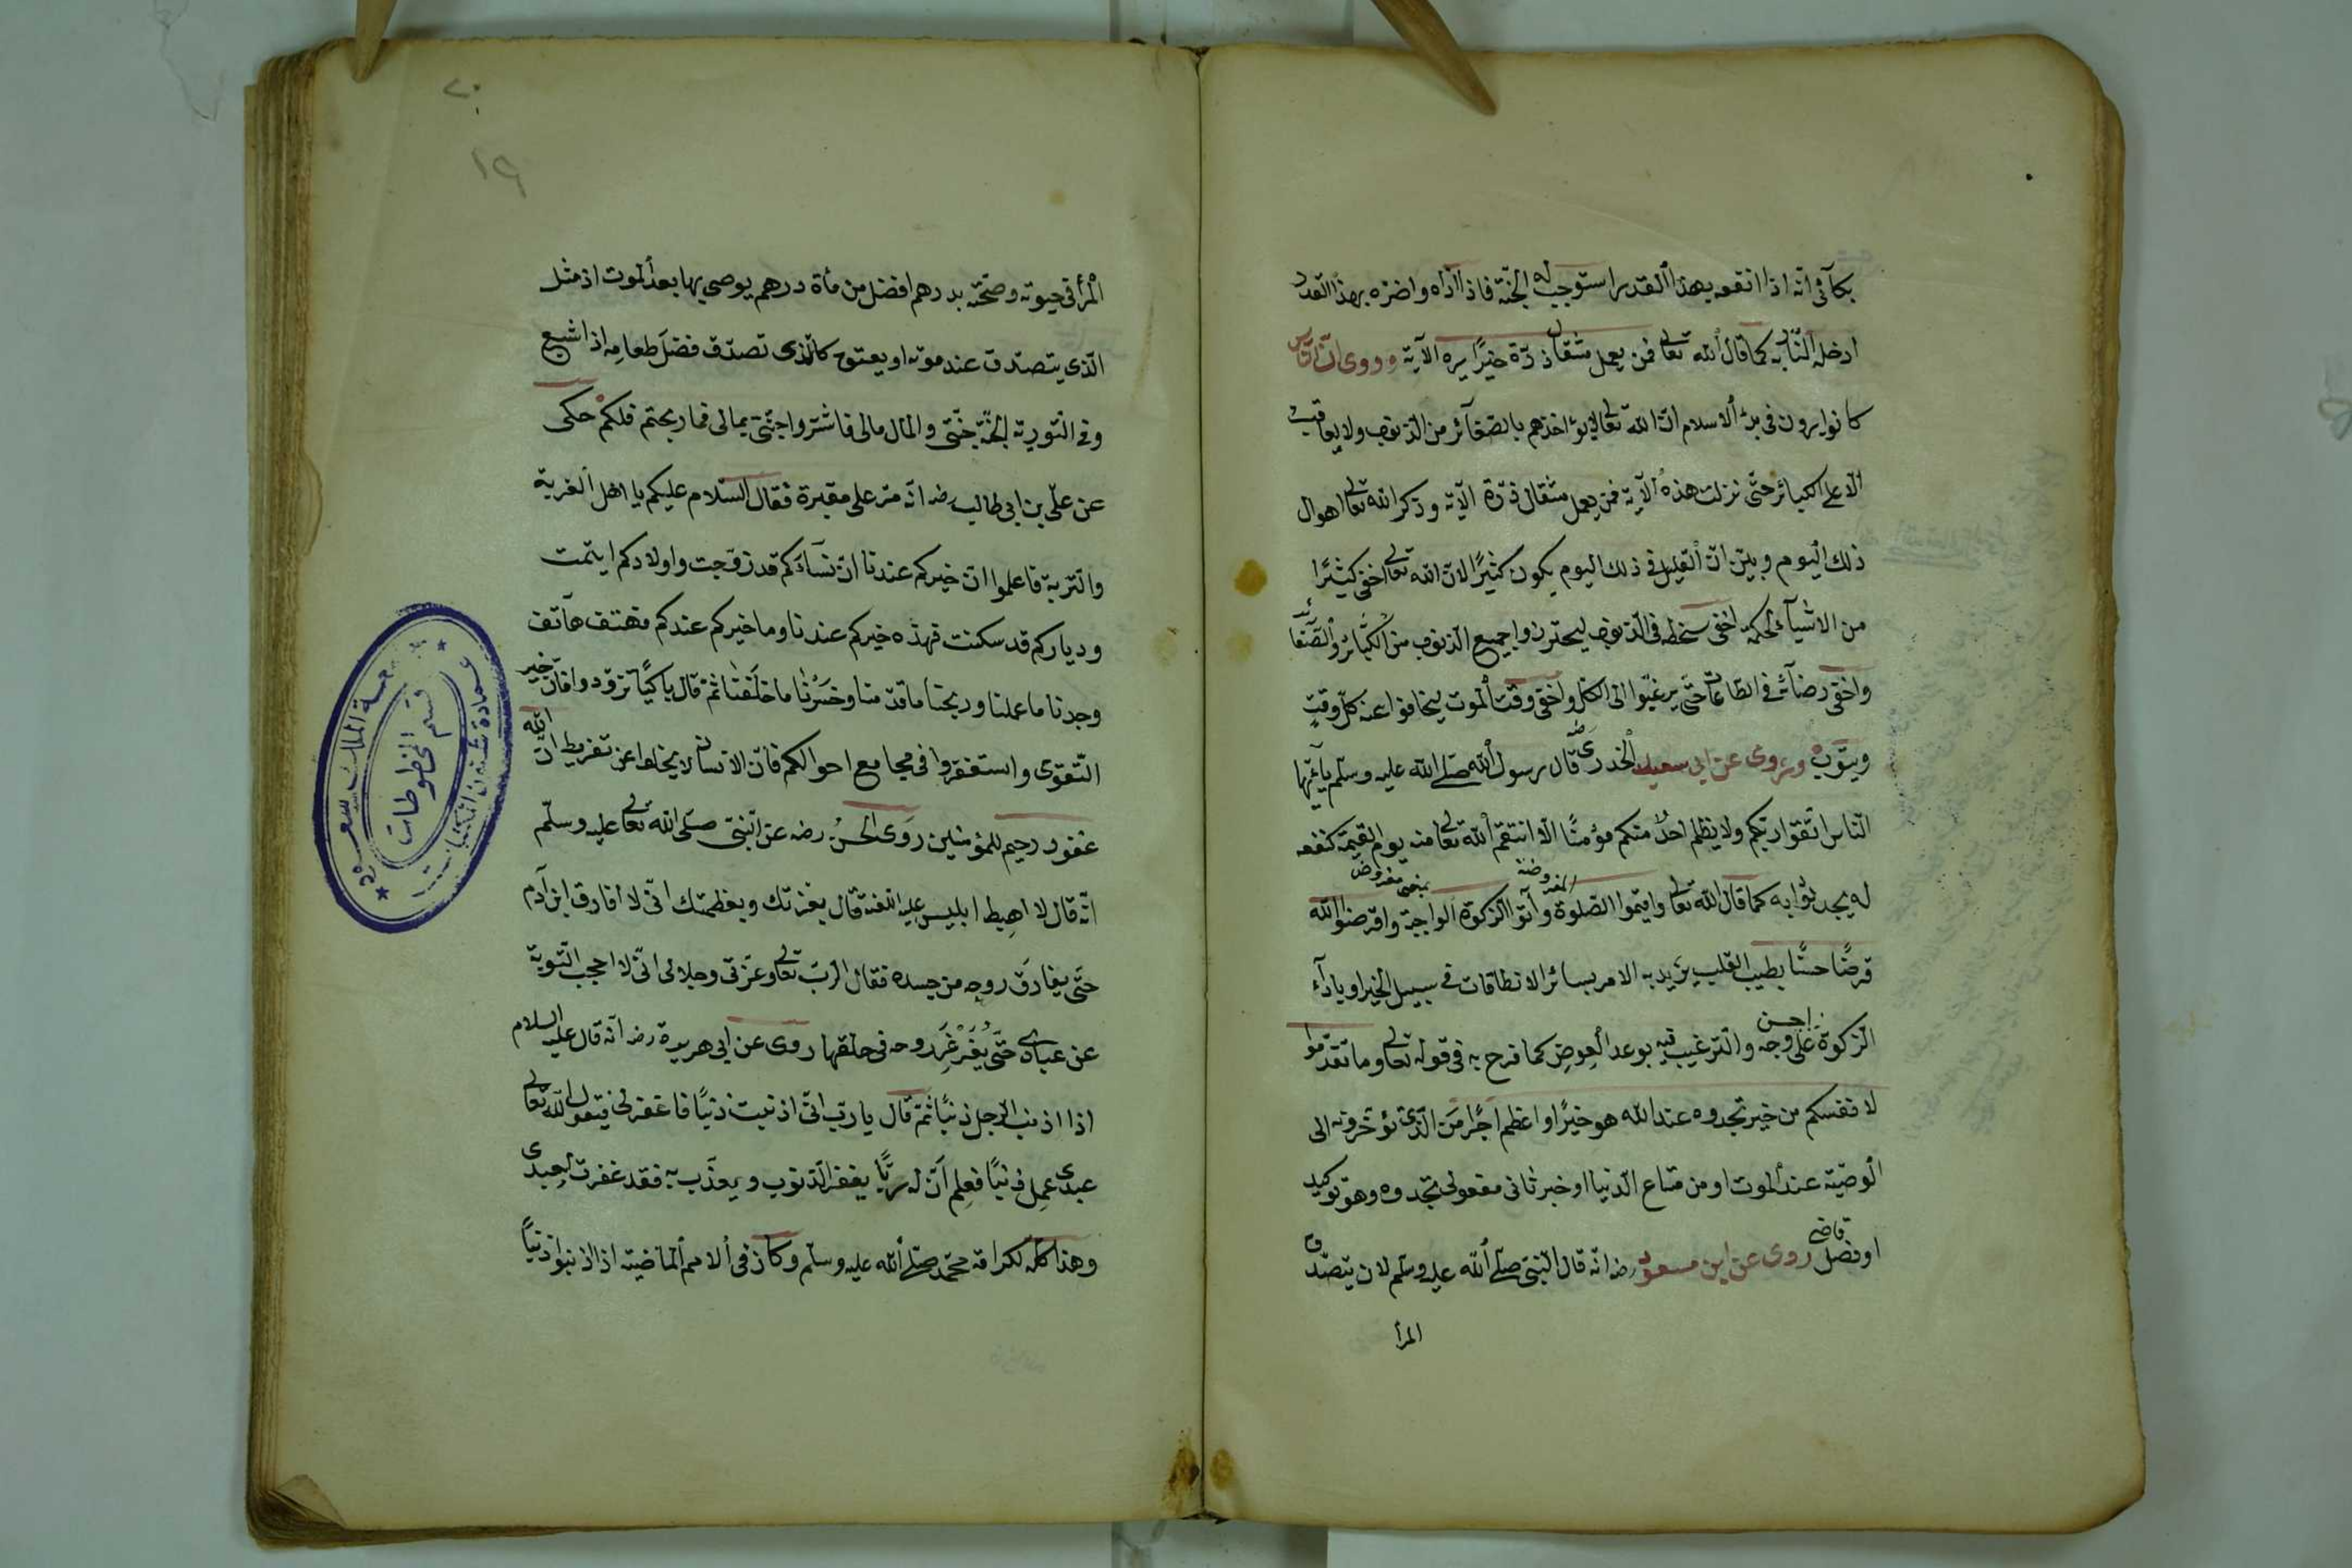 بكآئى انه اذا انفعه بهذا القدر استوجب له الجنة فاذا اذاه واضره بهذا القدر
ادخله النار به كما قال الله تعالى فمن يعمل مثقال ذرة خيرًا يره الآية وروى ان الناس
كانوا يرون فى بدء الاسلام ان الله تعالى لا يؤاخذهم بالصغآئر من الذنوب ولا يعاقب
الا على الكبائر حتى نزلت هذه الآية فمن يعمل مثقال ذرة الآية وذكر الله تعالى اهوال
ذلك اليوم وبين ان القليل فى ذلك اليوم يكون كثيرًا لان الله تعالى اخفى كثيرًا
من الاشيآء لحكمة اخفى سخطه فى الذنوب ليحترزوا جميع الذنوب من الكبائر والصغائر
واخفى رضآئه فى الطاعات حتى يرغبوا الى الكل واخفى وقت الموت ليخافوا عنه كل وقت
ويتوب ويروى عن ابى سعيد الخدرى رض قال رسول الله صلى الله عليه وسلم يا ايها
الناس اتقوا ربكم ولا يظلم احد منكم مؤمنًا الا انتقم الله تعالى منه يوم القيمة كنفعه
المفروضة بمعنى مفروض
له يجد ثوابه كما قال الله تعالى واقيموا الصلوة وآتوا الزكوة الواجبة واقرضوا الله
قرضًا حسنًا بطيب القلب يريد به الامر بسائر الانطاقات فى سبيل الخير او باداء
الزكوة على احسن وجه والترغيب فيه بوعد العوض كما فرح به فى قوله تعالى وما تقدموا
لانفسكم من خير تجدوه عند الله هو خيرًا واعظم اجرًا من الذى تؤخرونه الى
الوصية عند الموت او من متاع الدنيا او خير ثانى مفعولى تجدوه وهو توكيد
او فصل قاضى روى عن ابن مسعود رضه انه قال النبى صلى الله عليه وسلم لان يتصدق
المرأ
٢٠
١٩
المرأ فى حيوته وصحته بدرهم افضل من مأة درهم يوصى بها بعد الموت اذ مثل
الذى يتصدق عند موته او يعتق كالذى تصدق فضل طعامه اذا شبع
وفى التورية الجنة جنتى والمال مالى فاشتروا جنتى بمالى فما ربحتم فلكم حكى
عن على بن ابى طالب رضه انه مر على مقبرة فقال السلام عليكم يا اهل الغربة
والتربة فاعلموا ان خيركم عندنا ان نسآءكم قد زوجت واولادكم ايتمت
ودياركم قد سكنت فهذه خيركم عندنا وما خيركم عندكم فهتف هاتف
وجدنا ما عملنا وربحنا ما قدمنا وخسرنا ما خلفنا ثم قال باكيًا تزودوا فان خير
التقوى واستغفروا فى مجامع احوالكم فان الانسان لا يخلوا عن تفريط ان الله
غفور رحيم للمؤمنين روى الحسن رضه عن النبى صلى الله تعالى عليه وسلم
انه قال لا اهبط ابليس عليه اللعنة قال بعزتك وبعظمتك انى لا افارق ابن آدم
حتى يفارق روحه من جسده فقال الرب تعالى وعزتى وجلالى انى لا احجب التوبة
عن عبادى حتى يغرغر روحه فى حلقها روى عن ابى هريرة رضه انه قال عليه السلام
اذا اذنب الرجل ذنبًا ثم قال يا رب انى اذنبت ذنبًا فاغفر لى فيقول الله تعالى
عبدى عمل ذنبًا فعلم ان له ربًا يغفر الذنوب ويعذب به فقد غفرت لعبدى
وهذا كله لكرامة محمد صلى الله عليه وسلم وكان فى الامم الماضية اذا اذنبوا ذنبًا
جامعة الملك سعود
عمادة شئون المكتبات
قسم المخطوطات